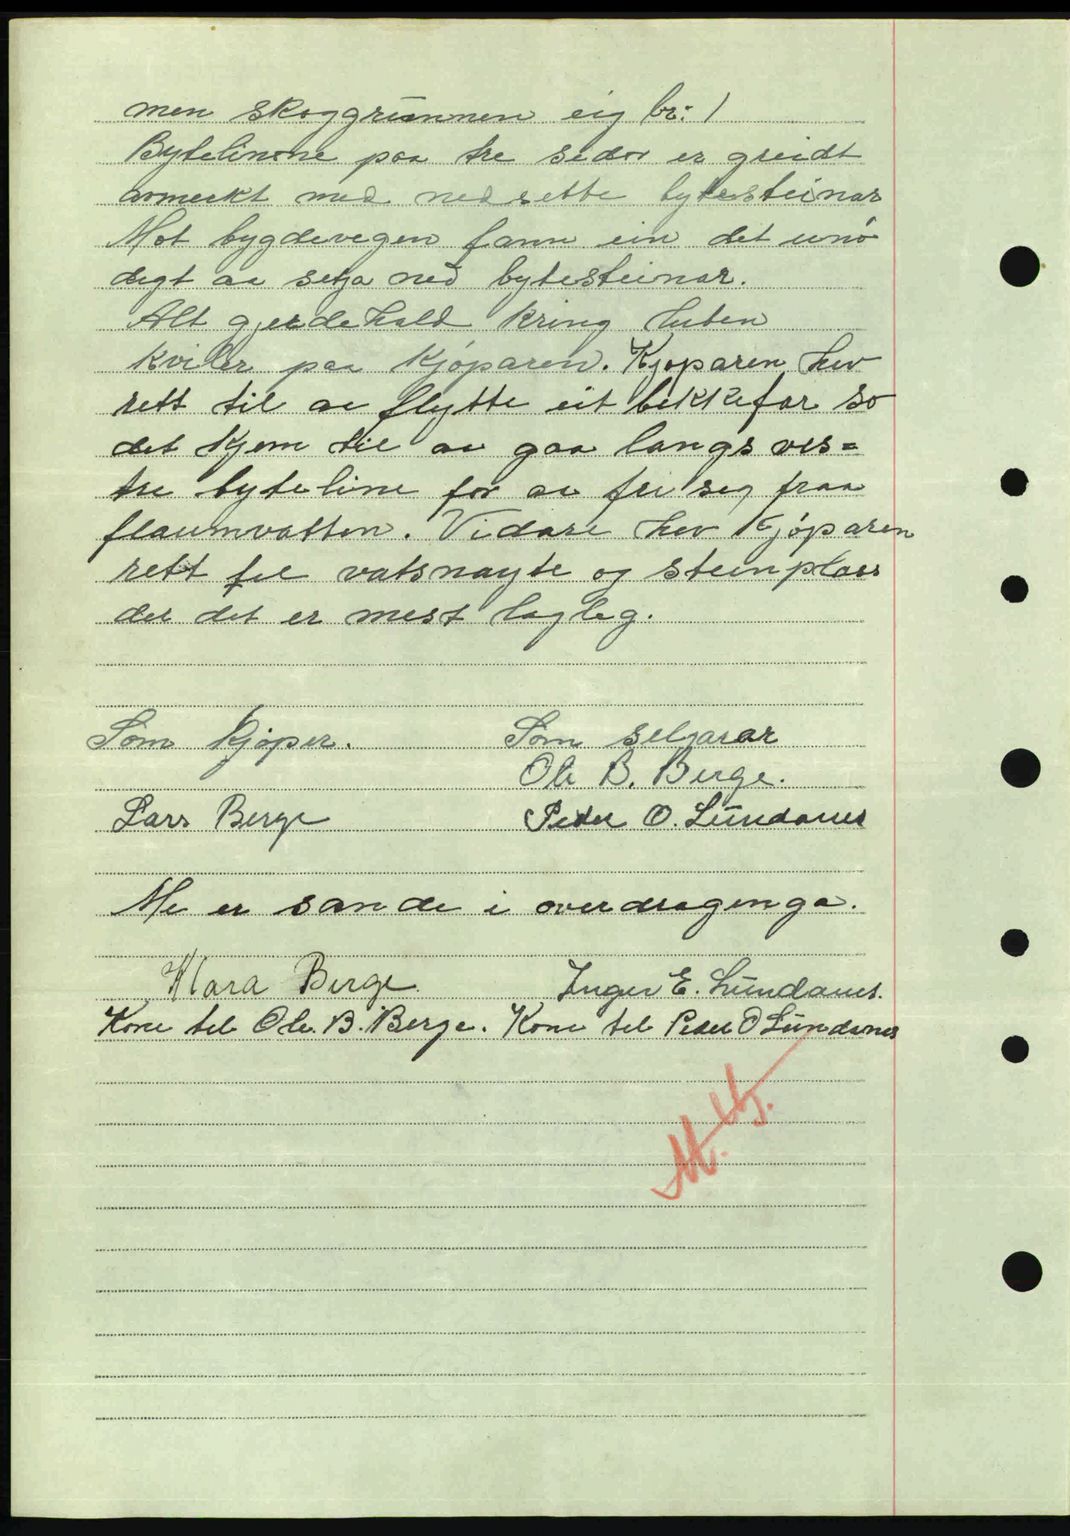 men skoggrunnen eig br: 1
Bytelinone paa tre sidor er greidt
avmerkt med nedsette bytesteinar
Mot bygdevegen fann ein det unö
digt aa setja ned bytesteinar.
Alt gjerdehald kring tuten
kviler paa kjöparen. Kjöparen hev
rett til aa flytte eit bekkefar so
det kjem til aa gaa langs ves=
tre byteline for aa fri seg fraa
flaumvatten. Vidare hev kjöparen
rett til vatsnayte og steinplass
der det er mest lagleg.
Som kjøper. Som seljarar
Ole B. Berge.
Lars Berge Peder O. Lundanes
Me er sande i overdraginga.
Klara Berge Inger E. Lundanes.
Kone til Ole. B. Berge. Kone til Peder O Lundanes